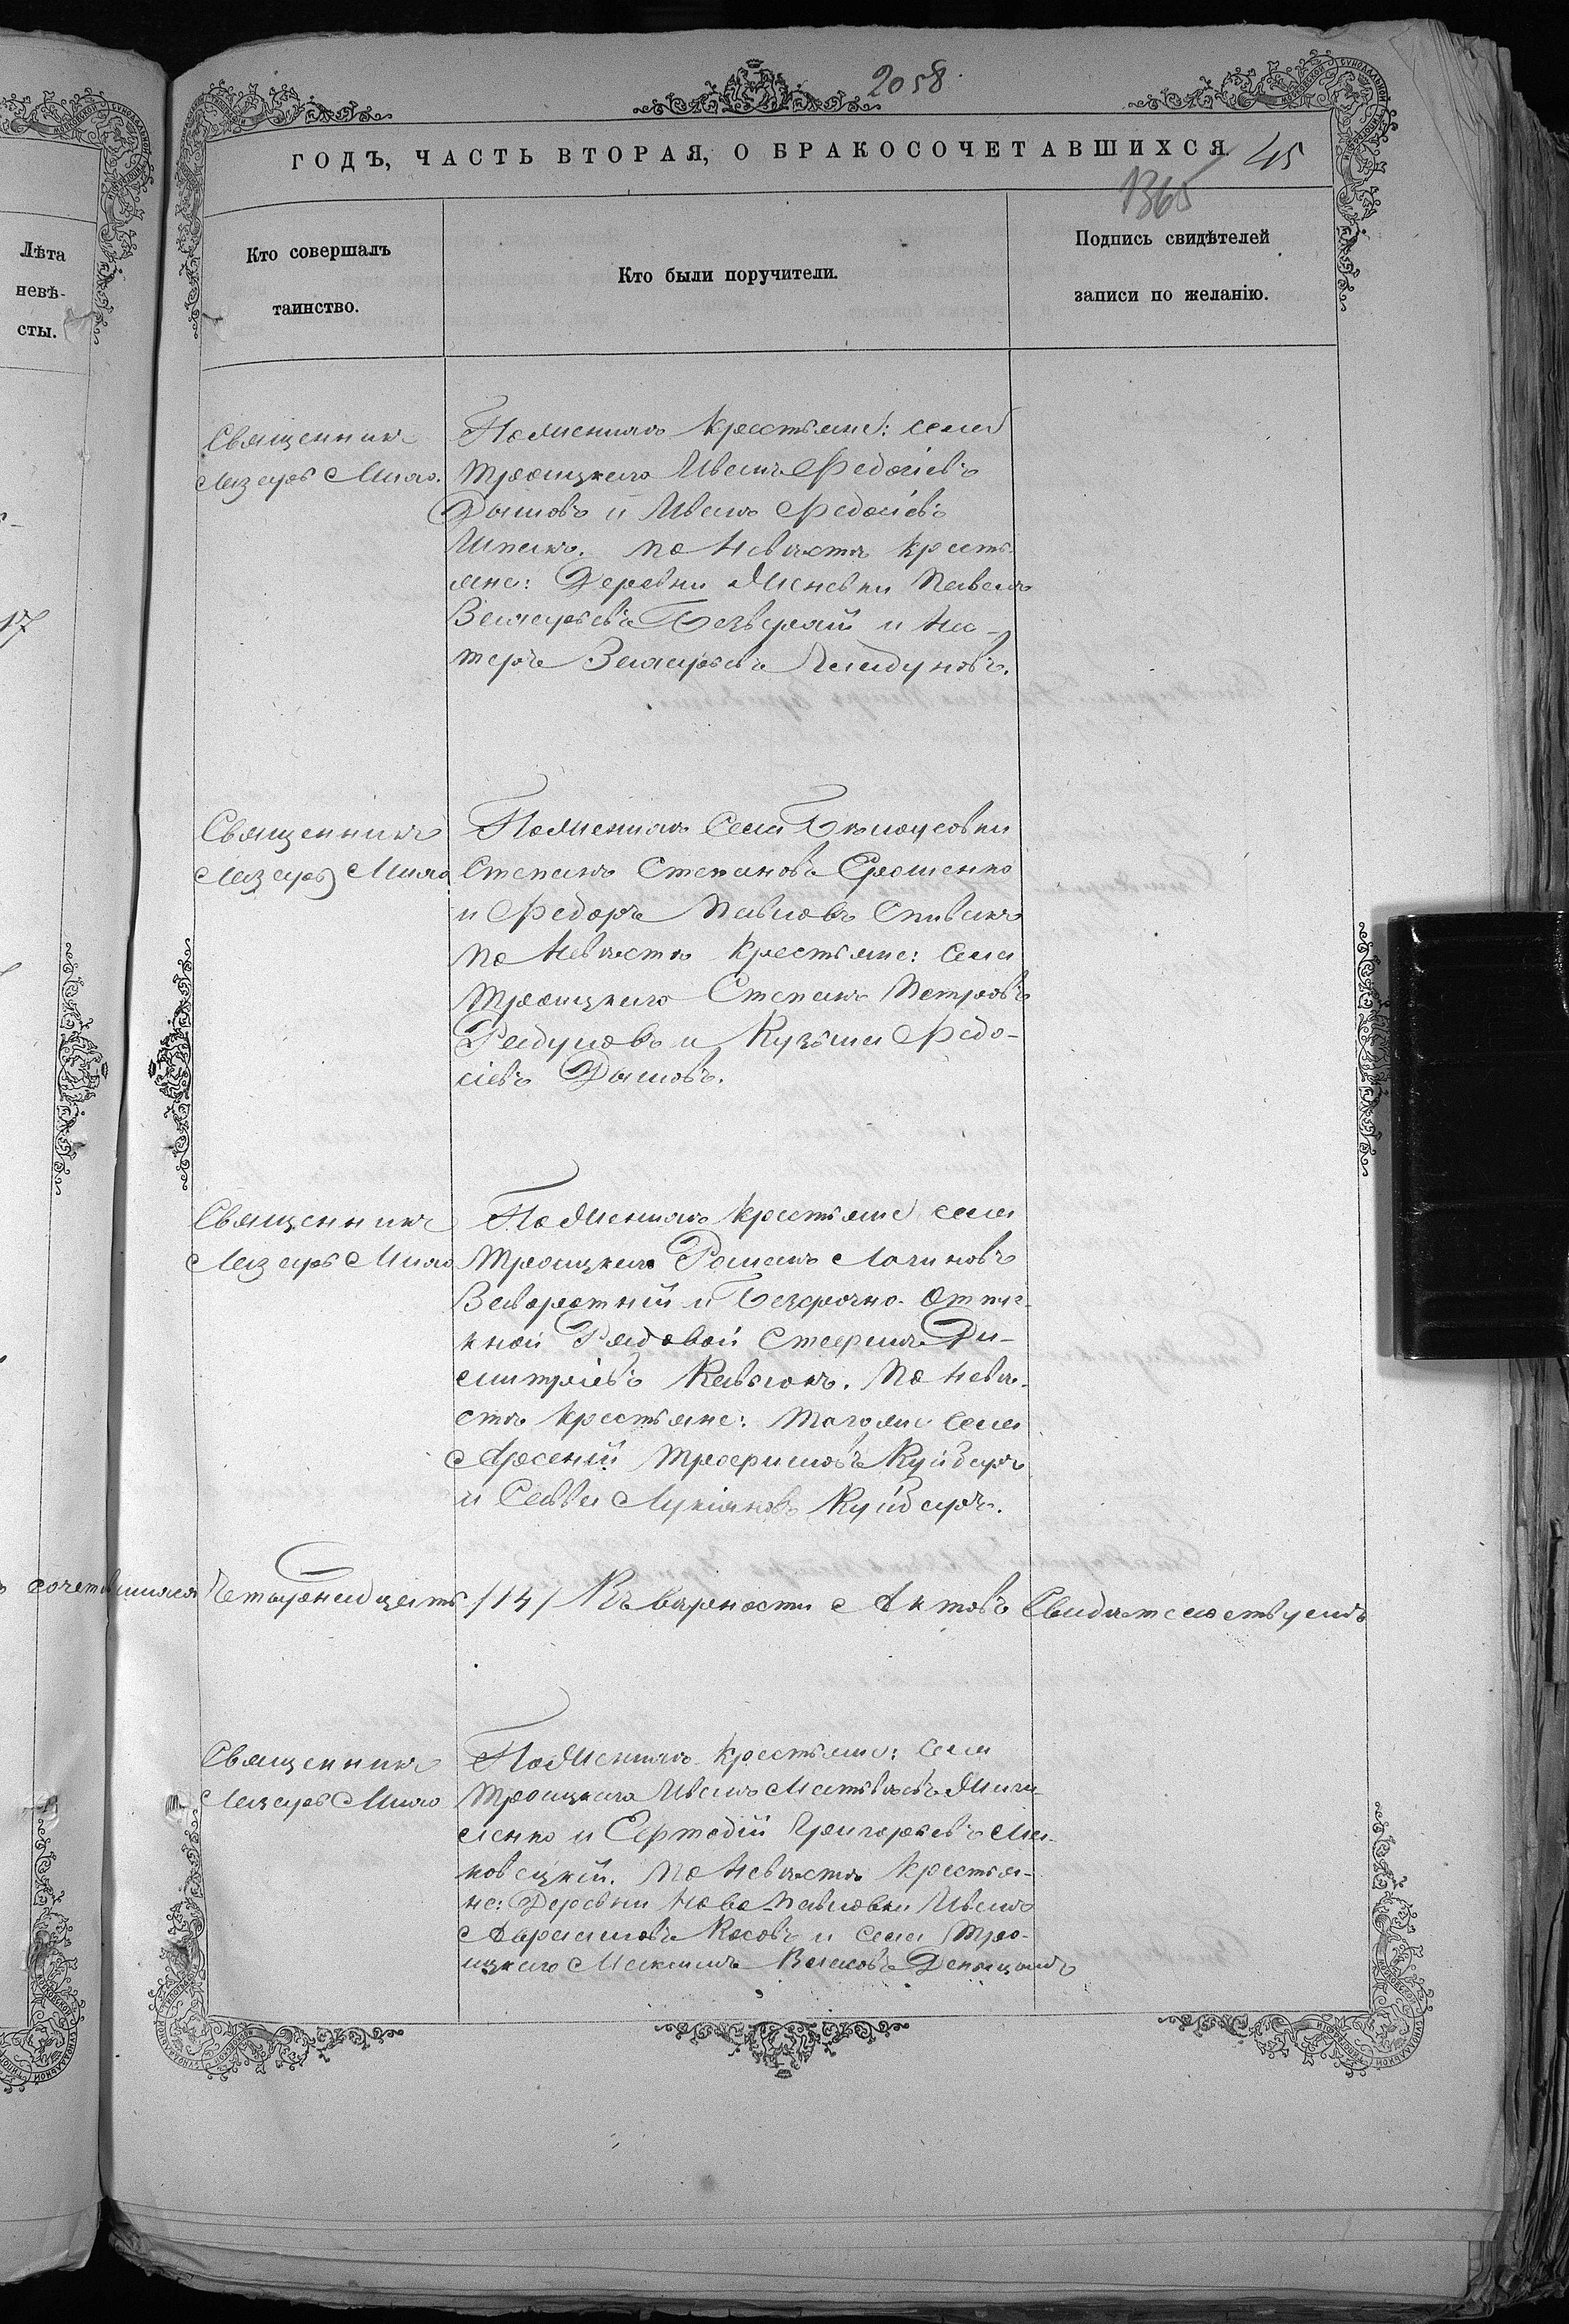 2058
ГОДЪ, ЧАСТЬ ВТОРАЯ, О БРАКОСОЧЕТАВШИХСЯ
45
1365
Лѣта
невѣ-
сты.
Кто совершалъ
таинство.
Кто были поручители.
Подпись свидѣтелей
записи по желанію.
Священникъ
Лазарь
По Женихѣ Крестьяне: села
Троицкаго Иванъ Федосіевъ
Дымовъ и Иванъ Федосіевъ
Шпакъ. По Невѣстѣ Кресть-
яне: Деревни Павелъ
Захарьевъ и Пе-
теръ Захарьевъ
17
Священникъ
Лазарь
По Женихѣ Села Бѣлоусовки
Степанъ Степановъ Ерошенко
и Федоръ Павловъ Спивакъ
По Невѣстѣ Крестьяне: Села
Троицкаго Степанъ Петровъ
и Кузьма Федо-
сіевъ Дымовъ.
Священникъ
Лазарь
По Женихѣ Крестьяне села
Троицкаго Романъ Логиновъ
и Безсрочно-Отпус-
кной Рядовой Стефанъ Ди-
митріевъ По Невѣ-
стѣ Крестьяне: Тогоже Села
Арсеній Трофимовъ Куйбаръ
и Савва Лукіановъ Куйбаръ.
сочетавшихся Четырнадцать /14/ Въ вѣрности Актовъ Свидѣтельствуемъ
Священникъ
Лазарь
По Женихѣ Крестьяне: Села
Троицкаго Иванъ Матвѣевъ
и Григорьевъ Ма-
ковецкій. По Невѣстѣ Крестья-
не: Деревни Ново-Павловки Иванъ
Аврамовъ Косовъ и села Трои-
цкаго Максимъ Власовъ